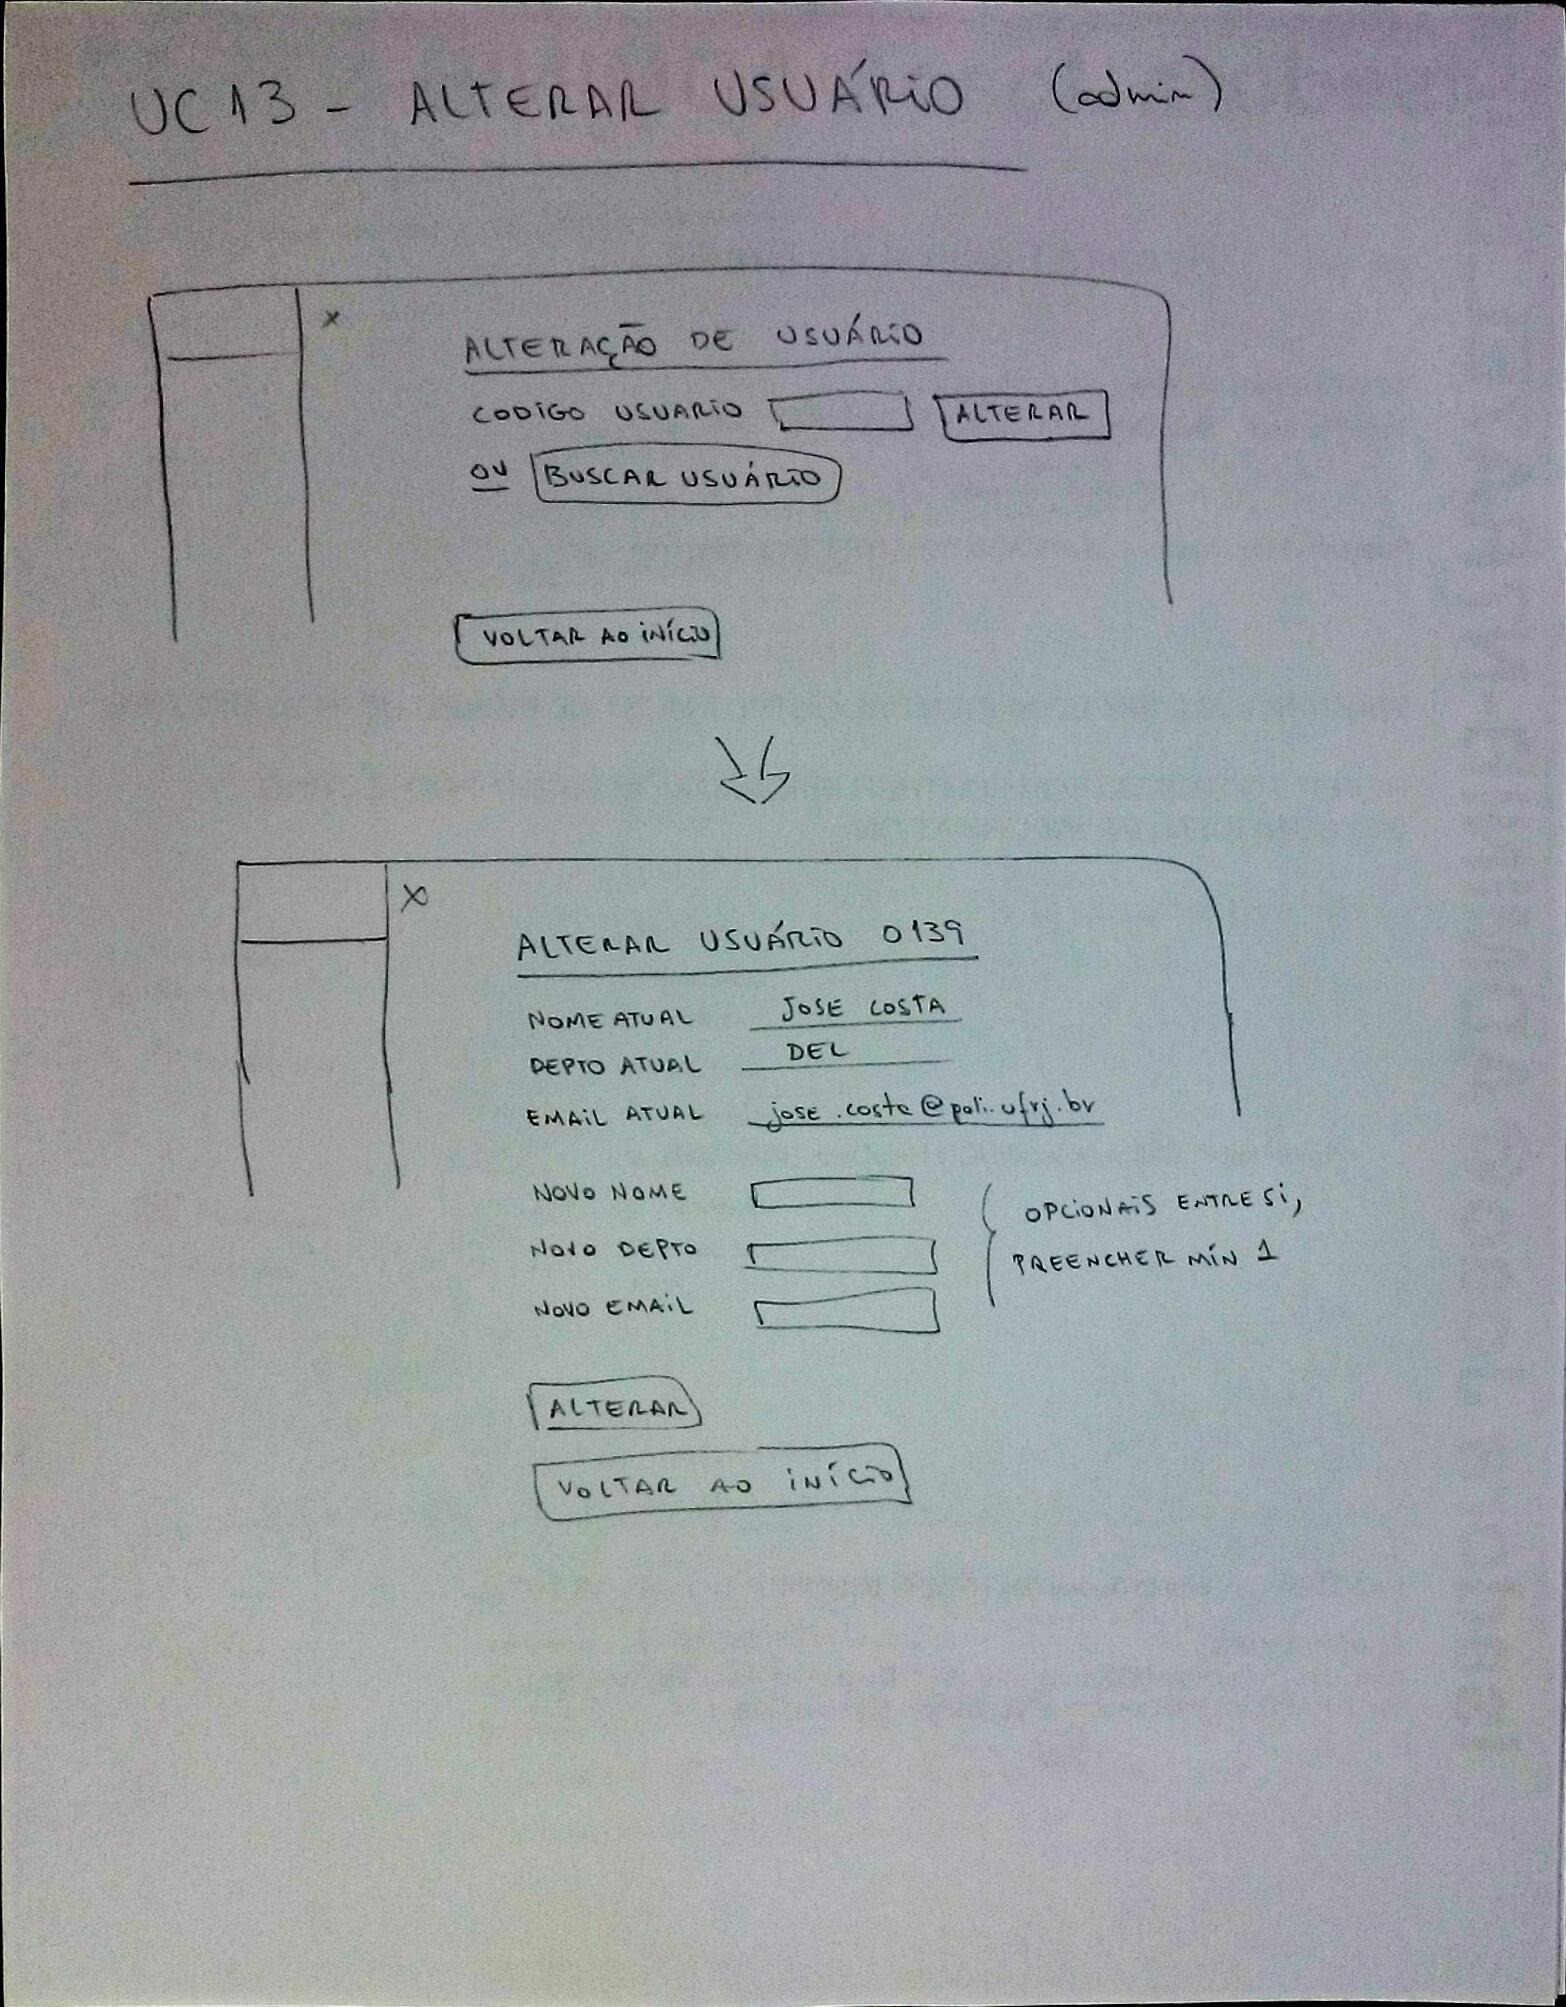 UC13 - ALTERAR USUÁRIO (admin)
x
ALTERAÇÃO DE USUÁRIO
CODIGO USUARIO ALTERAR
OU BUSCAR USUÁRIO
VOLTAR AO INÍCIO
x
ALTERAR USUÁRIO 0139
NOME ATUAL JOSE COSTA
DEPTO ATUAL DEL
EMAIL ATUAL jose.costa@poli.ufrj.br
NOVO NOME
NOVO DEPTO
NOVO EMAIL
OPCIONAIS ENTRE SI,
PREENCHER MÍN 1
ALTERAR
VOLTAR AO INÍCIO